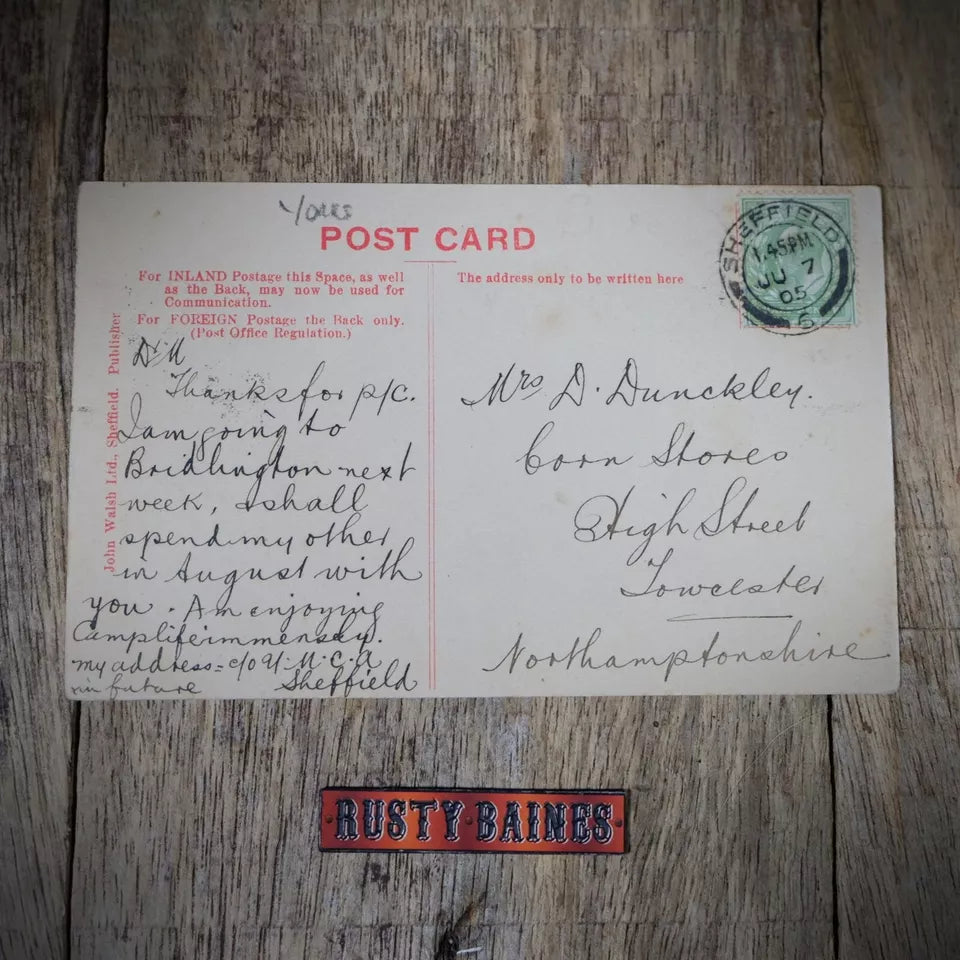 Yours
POST CARD
For INLAND Postage this Space, as well
as the Back, may now be used for
Communication.
For FOREIGN Postage the Back only.
(Post Office Regulation.)
The address only to be written here
John Walsh Ltd., Sheffield. Publisher
SHEFFIELD
1.45PM
JU 7
05
6
Dr M
Thanks for p/c.
I am going to
Bridlington next
week, & shall
spend my other
in August with
you. Am enjoying
Camp life immensely.
my address = c/o Y.M.C.A
in future Sheffield
Mrs D. Dunckley.
Corn Stores
High Street
Towcester
Northamptonshire
RUSTY BAINES